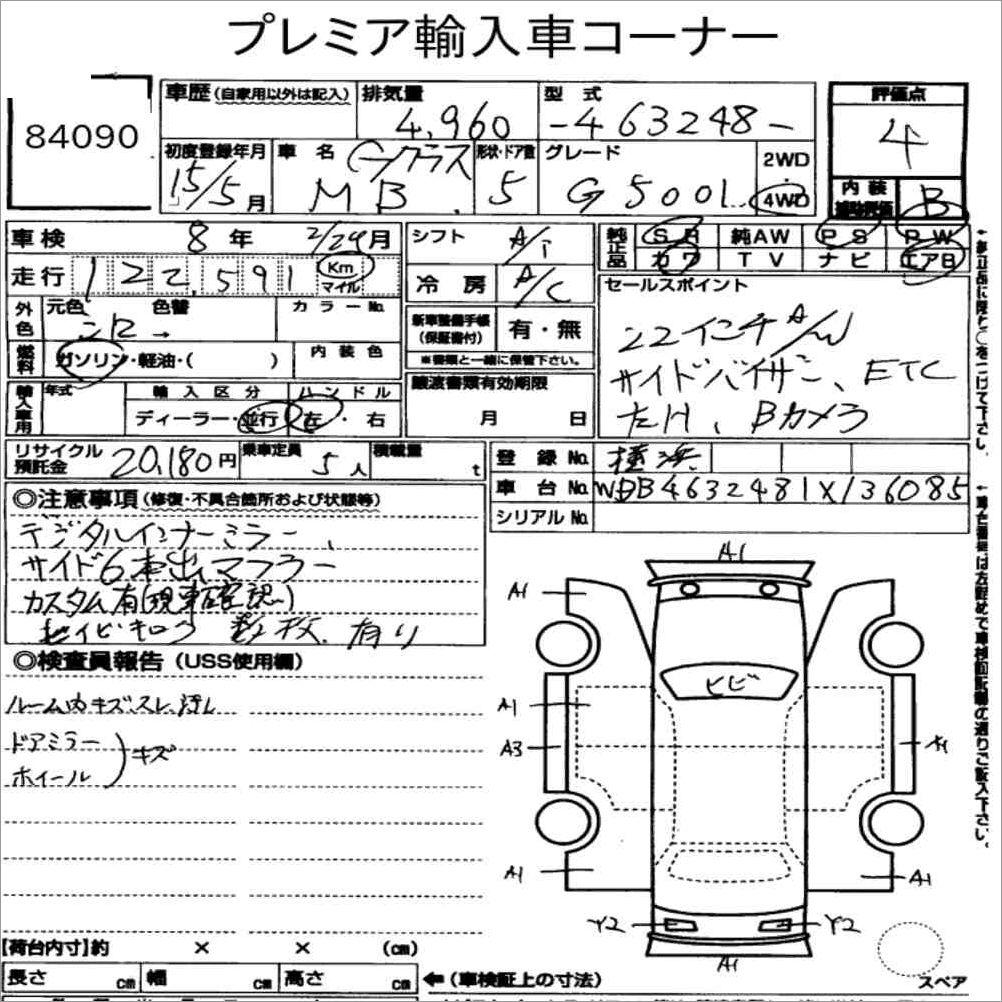 プレミア輸入車コーナー
84090
車歴(自家用以外は記入) 排気量 型式 評価点
4,960 -463248- 4
初度登録年月 車名 形状・ドア数 グレード 2WD
15/5月 Gクラス MB 5 G500L 4WD
内装補助評価 B
車検 8年 2/24月 シフト A/T
走行 122,591 Km マイル 冷房 A/C
純正品 SR 純AW PS PW
カワ TV ナビ エアB
外色 元色 色替 カラーNo.
燃料 ガソリン・軽油・( ) 内装色
新車整備手帳(保証書付) 有・無
※書類と一緒に保管下さい。
セールスポイント
22インチA/W
サイドバイザー、ETC
左H、Bカメラ
輸入車用 年式 輸入区分 ハンドル
ディーラー・並行 左・右
譲渡書類有効期限
月 日
リサイクル預託金 20,180円 乗車定員 5人 積載量 t
登録No. 横浜
車台No. WDB4632481X136085
シリアルNo.
◎注意事項(修復・不具合箇所および状態等)
デジタルインナーミラー、
サイド6本出マフラー
カスタム有(現車確認)
セイビキロク 数枚 有り
◎検査員報告(USS使用欄)
ルーム内キズ、スレ、汚レ
ドアミラー
ホイール
キズ
A1
A1
ヒビ
A1
A3
A1
A1
A1
Y2
Y2
A1
スペア
【荷台内寸】約 × × (cm)
長さ cm 幅 cm 高さ cm ←(車検証上の寸法)
↑純正品に限り○をつけて下さい。
↑車台番号は左詰めで車検証記載の通りご記入下さい。